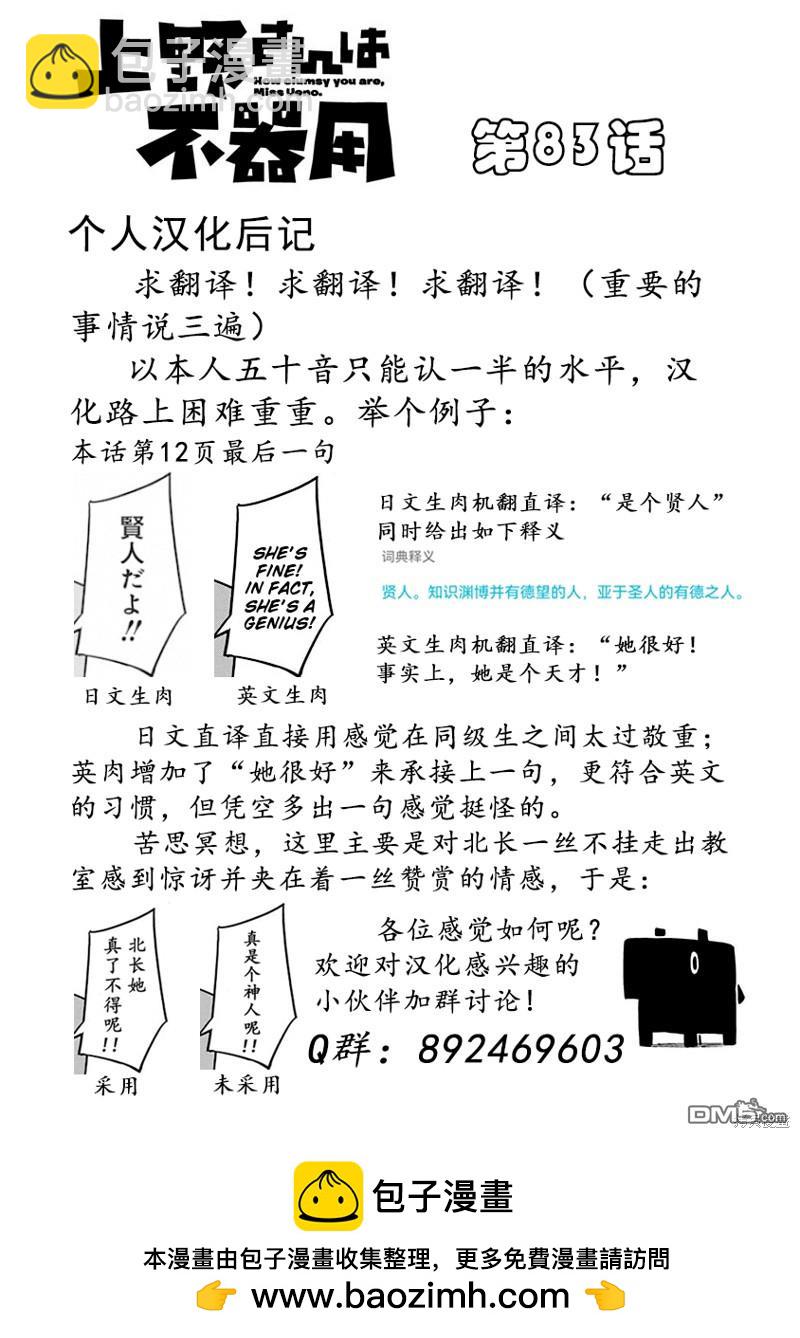 上野さんは
包子漫畫
baozimh.com
How clumsy you are,
Miss Ueno.
不器用
第83话
个人汉化后记
求翻译！求翻译！求翻译！（重要的
事情说三遍）
以本人五十音只能认一半的水平，汉
化路上困难重重。举个例子：
本话第12页最后一句
賢人だよ!!
SHE'S
FINE!
IN FACT,
SHE'S A
GENIUS!
日文生肉机翻直译：“是个贤人”
同时给出如下释义
词典释义
贤人。知识渊博并有德望的人，亚于圣人的有德之人。
英文生肉机翻直译：“她很好！
事实上，她是个天才！”
日文生肉
英文生肉
日文直译直接用感觉在同级生之间太过敬重；
英肉增加了“她很好”来承接上一句，更符合英文
的习惯，但凭空多出一句感觉挺怪的。
苦思冥想，这里主要是对北长一丝不挂走出教
室感到惊讶并夹在着一丝赞赏的情感，于是：
北长她
真了不得呢!!
真是个神人呢!!
各位感觉如何呢？
欢迎对汉化感兴趣的
小伙伴加群讨论！
Q群：892469603
采用
未采用
DM5.com
包子漫畫
本漫畫由包子漫畫收集整理，更多免費漫畫請訪問
👉 www.baozimh.com 👈